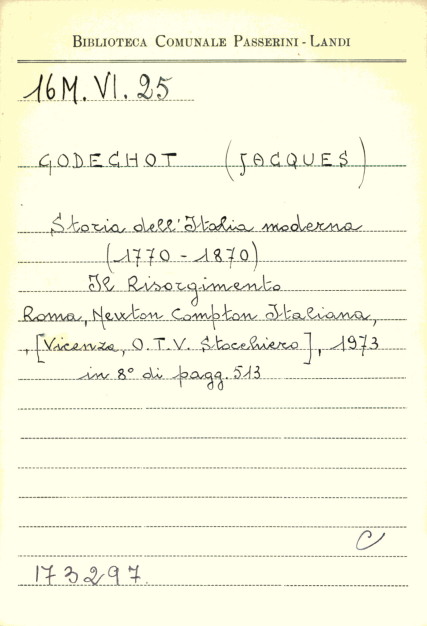 BIBLIOTECA COMUNALE PASSERINI - LANDI
16M. VI. 25
GODECHOT (JACQUES)
Storia dell'Italia moderna
(1770 - 1870)
Il Risorgimento
Roma, Newton Compton Italiana,
, [Vicenza, O.T.V. Stocchiero], 1973
in 8° di pagg. 513
C
173297.